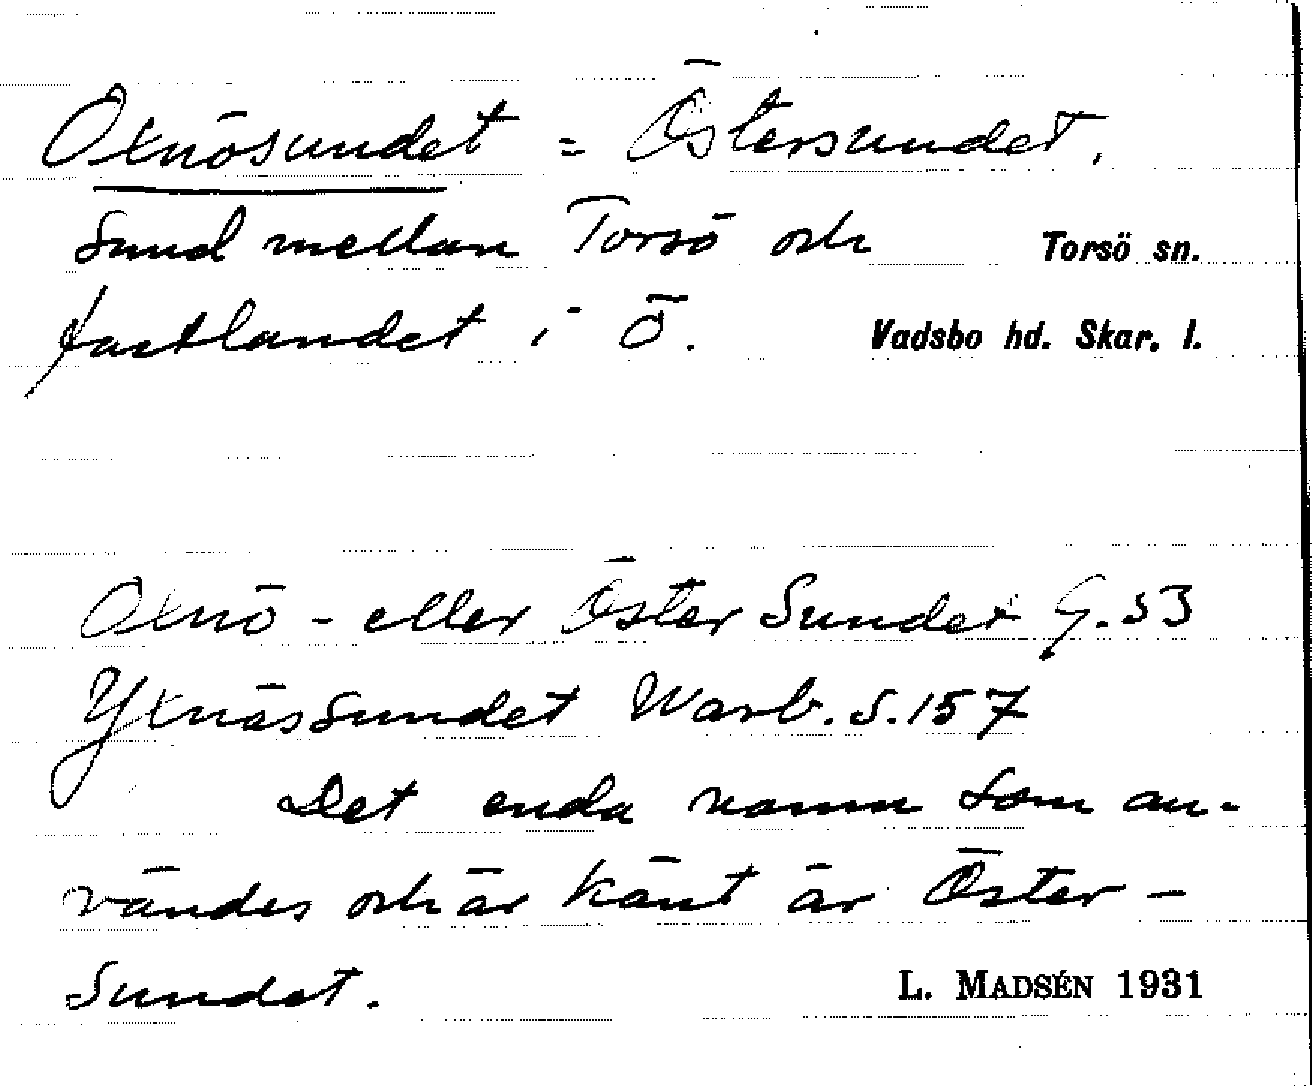 Oxnösundet = Östersundet.
Sund mellan Torsö och
Torsö sn.
fastlandet i Ö.
Vadsbo hd. Skar. l.
Oxnö- eller Öster Sundet G. 53
Yxnässundet Warb. s. 157
Det enda namn som an-
vändes och är känt är Öster-
sundet.
L. MADSÉN 1931